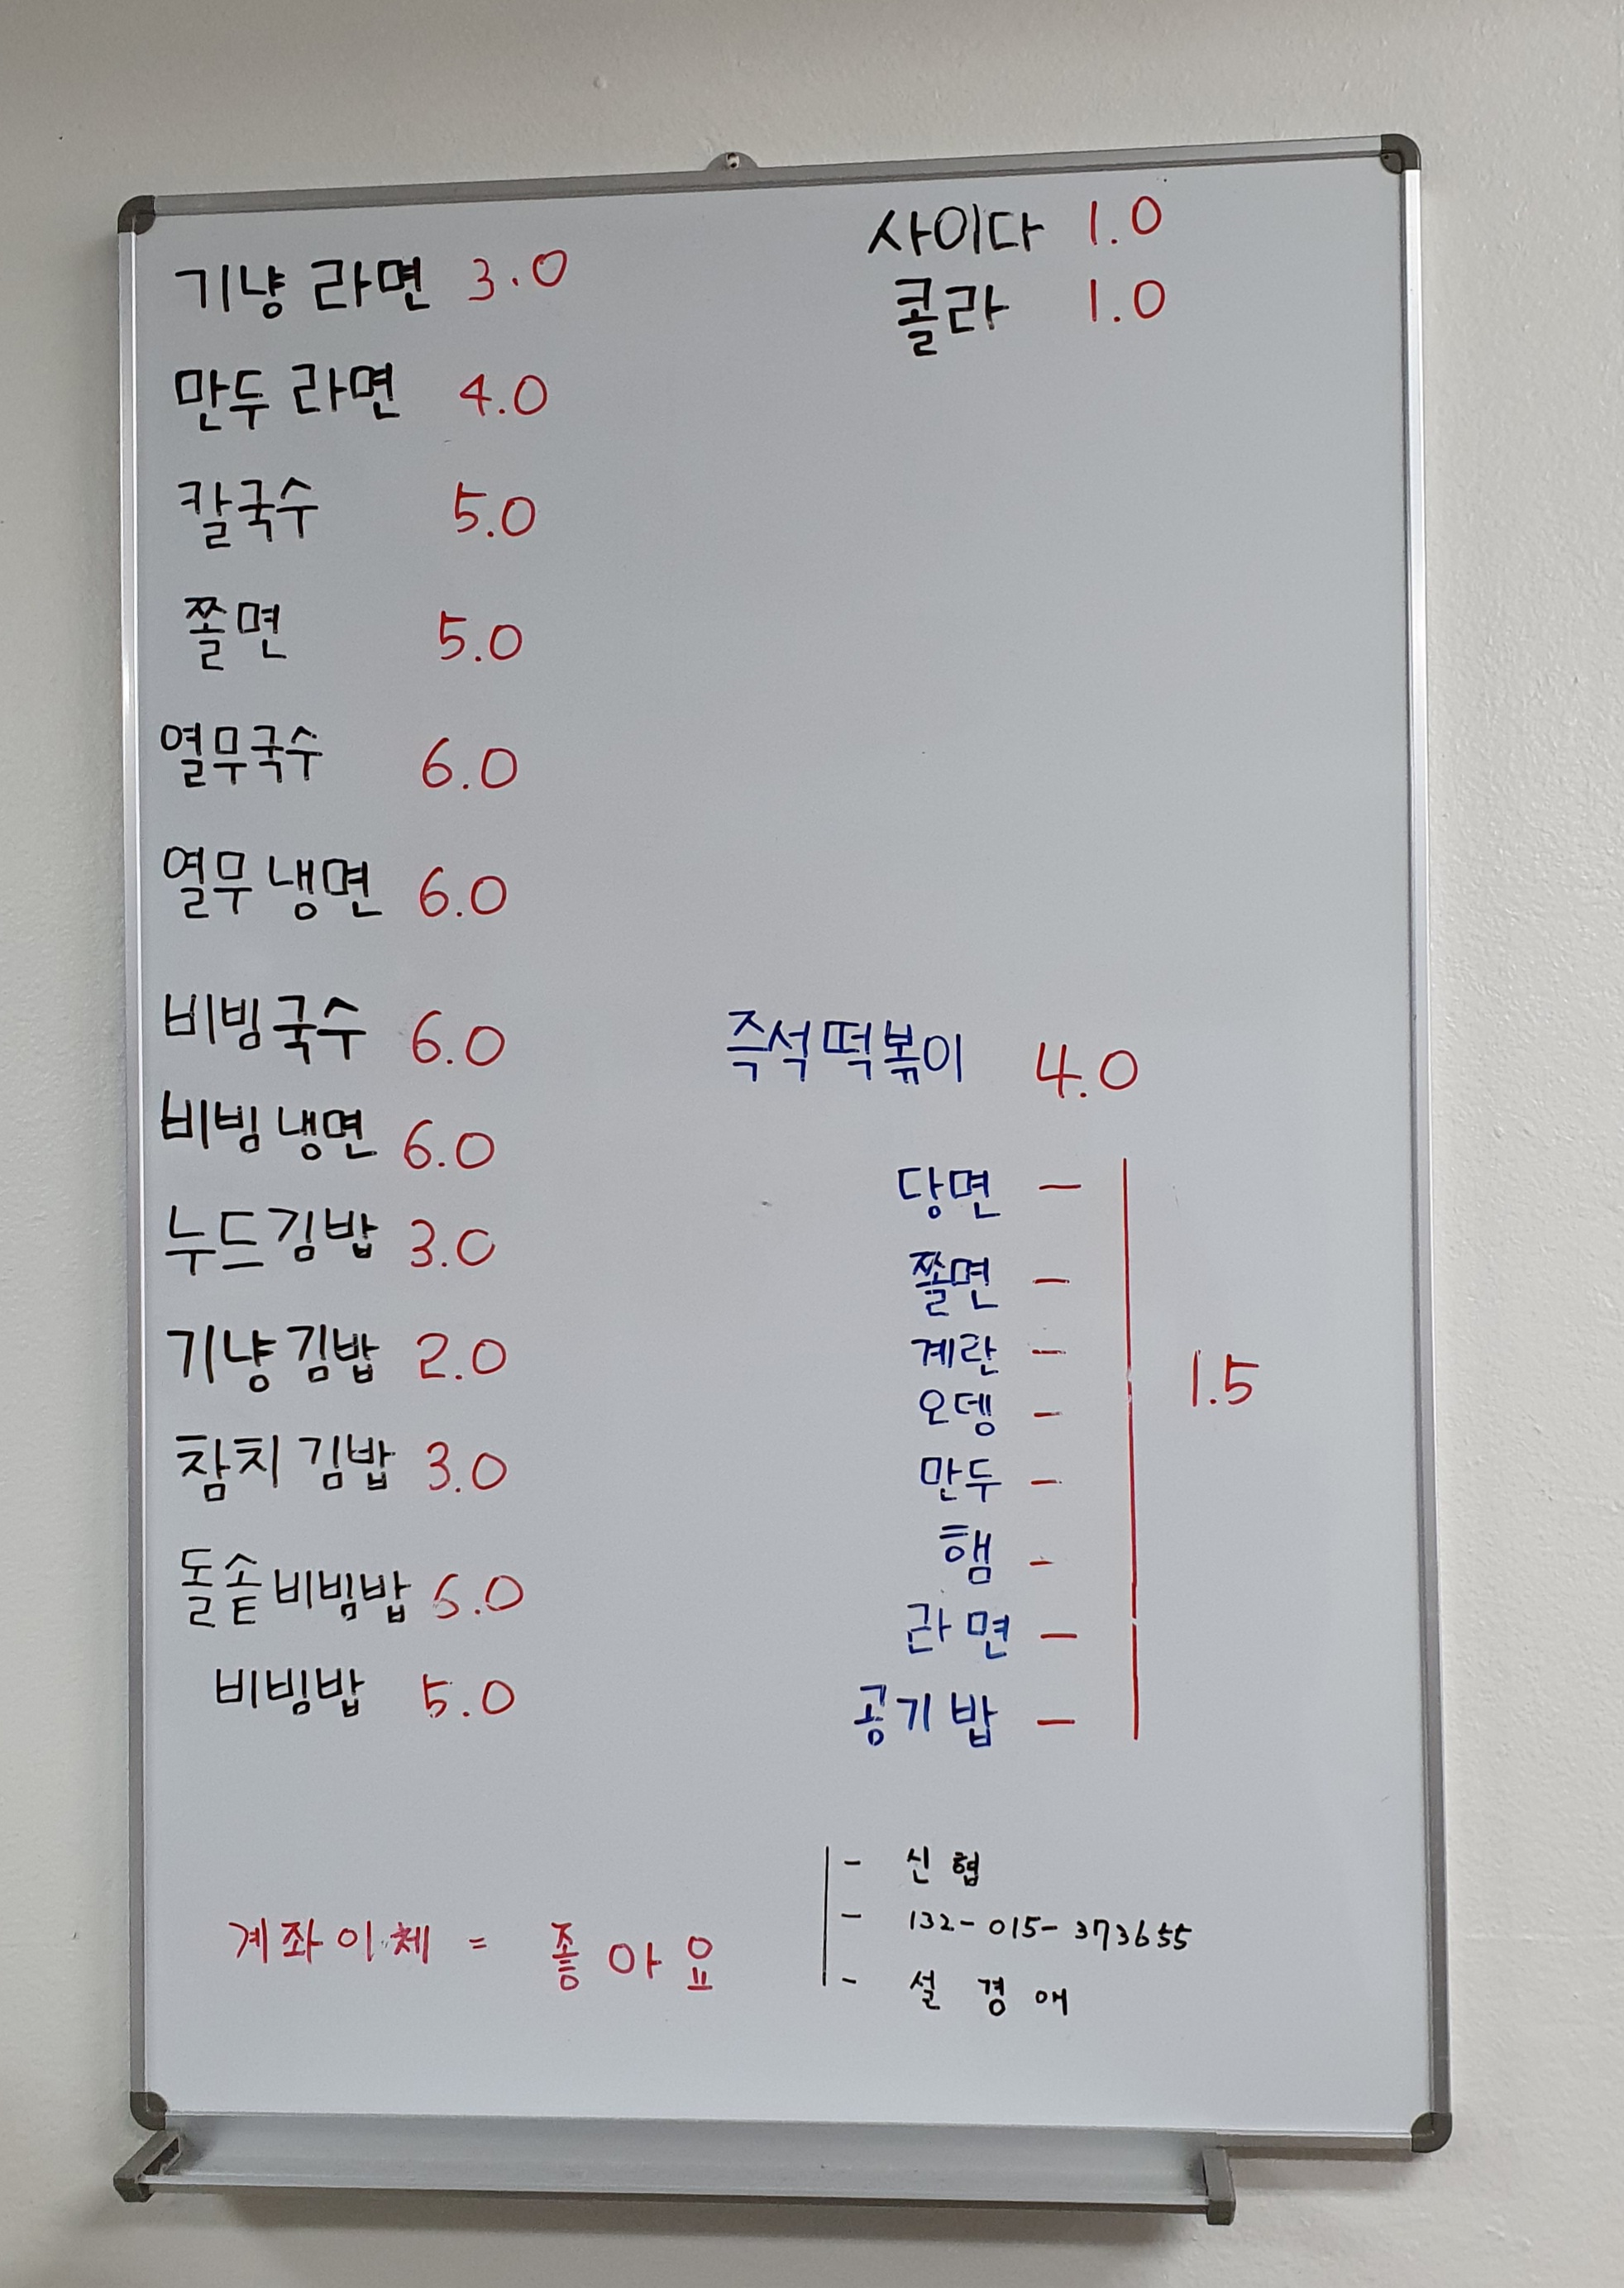 기냥 라면 3.0
만두 라면 4.0
칼국수 5.0
쫄면 5.0
열무국수 6.0
열무 냉면 6.0
비빔국수 6.0
비빔 냉면 6.0
누드김밥 3.0
기냥 김밥 2.0
참치 김밥 3.0
돌솥비빔밥 6.0
비빔밥 5.0
사이다 1.0
콜라 1.0
즉석떡볶이 4.0
당면 -
쫄면 -
계란 -
오뎅 -
만두 -
햄 -
라면 -
공기밥 -
1.5
계좌이체 = 좋아요
- 신협
- 132-015-373655
- 설경애